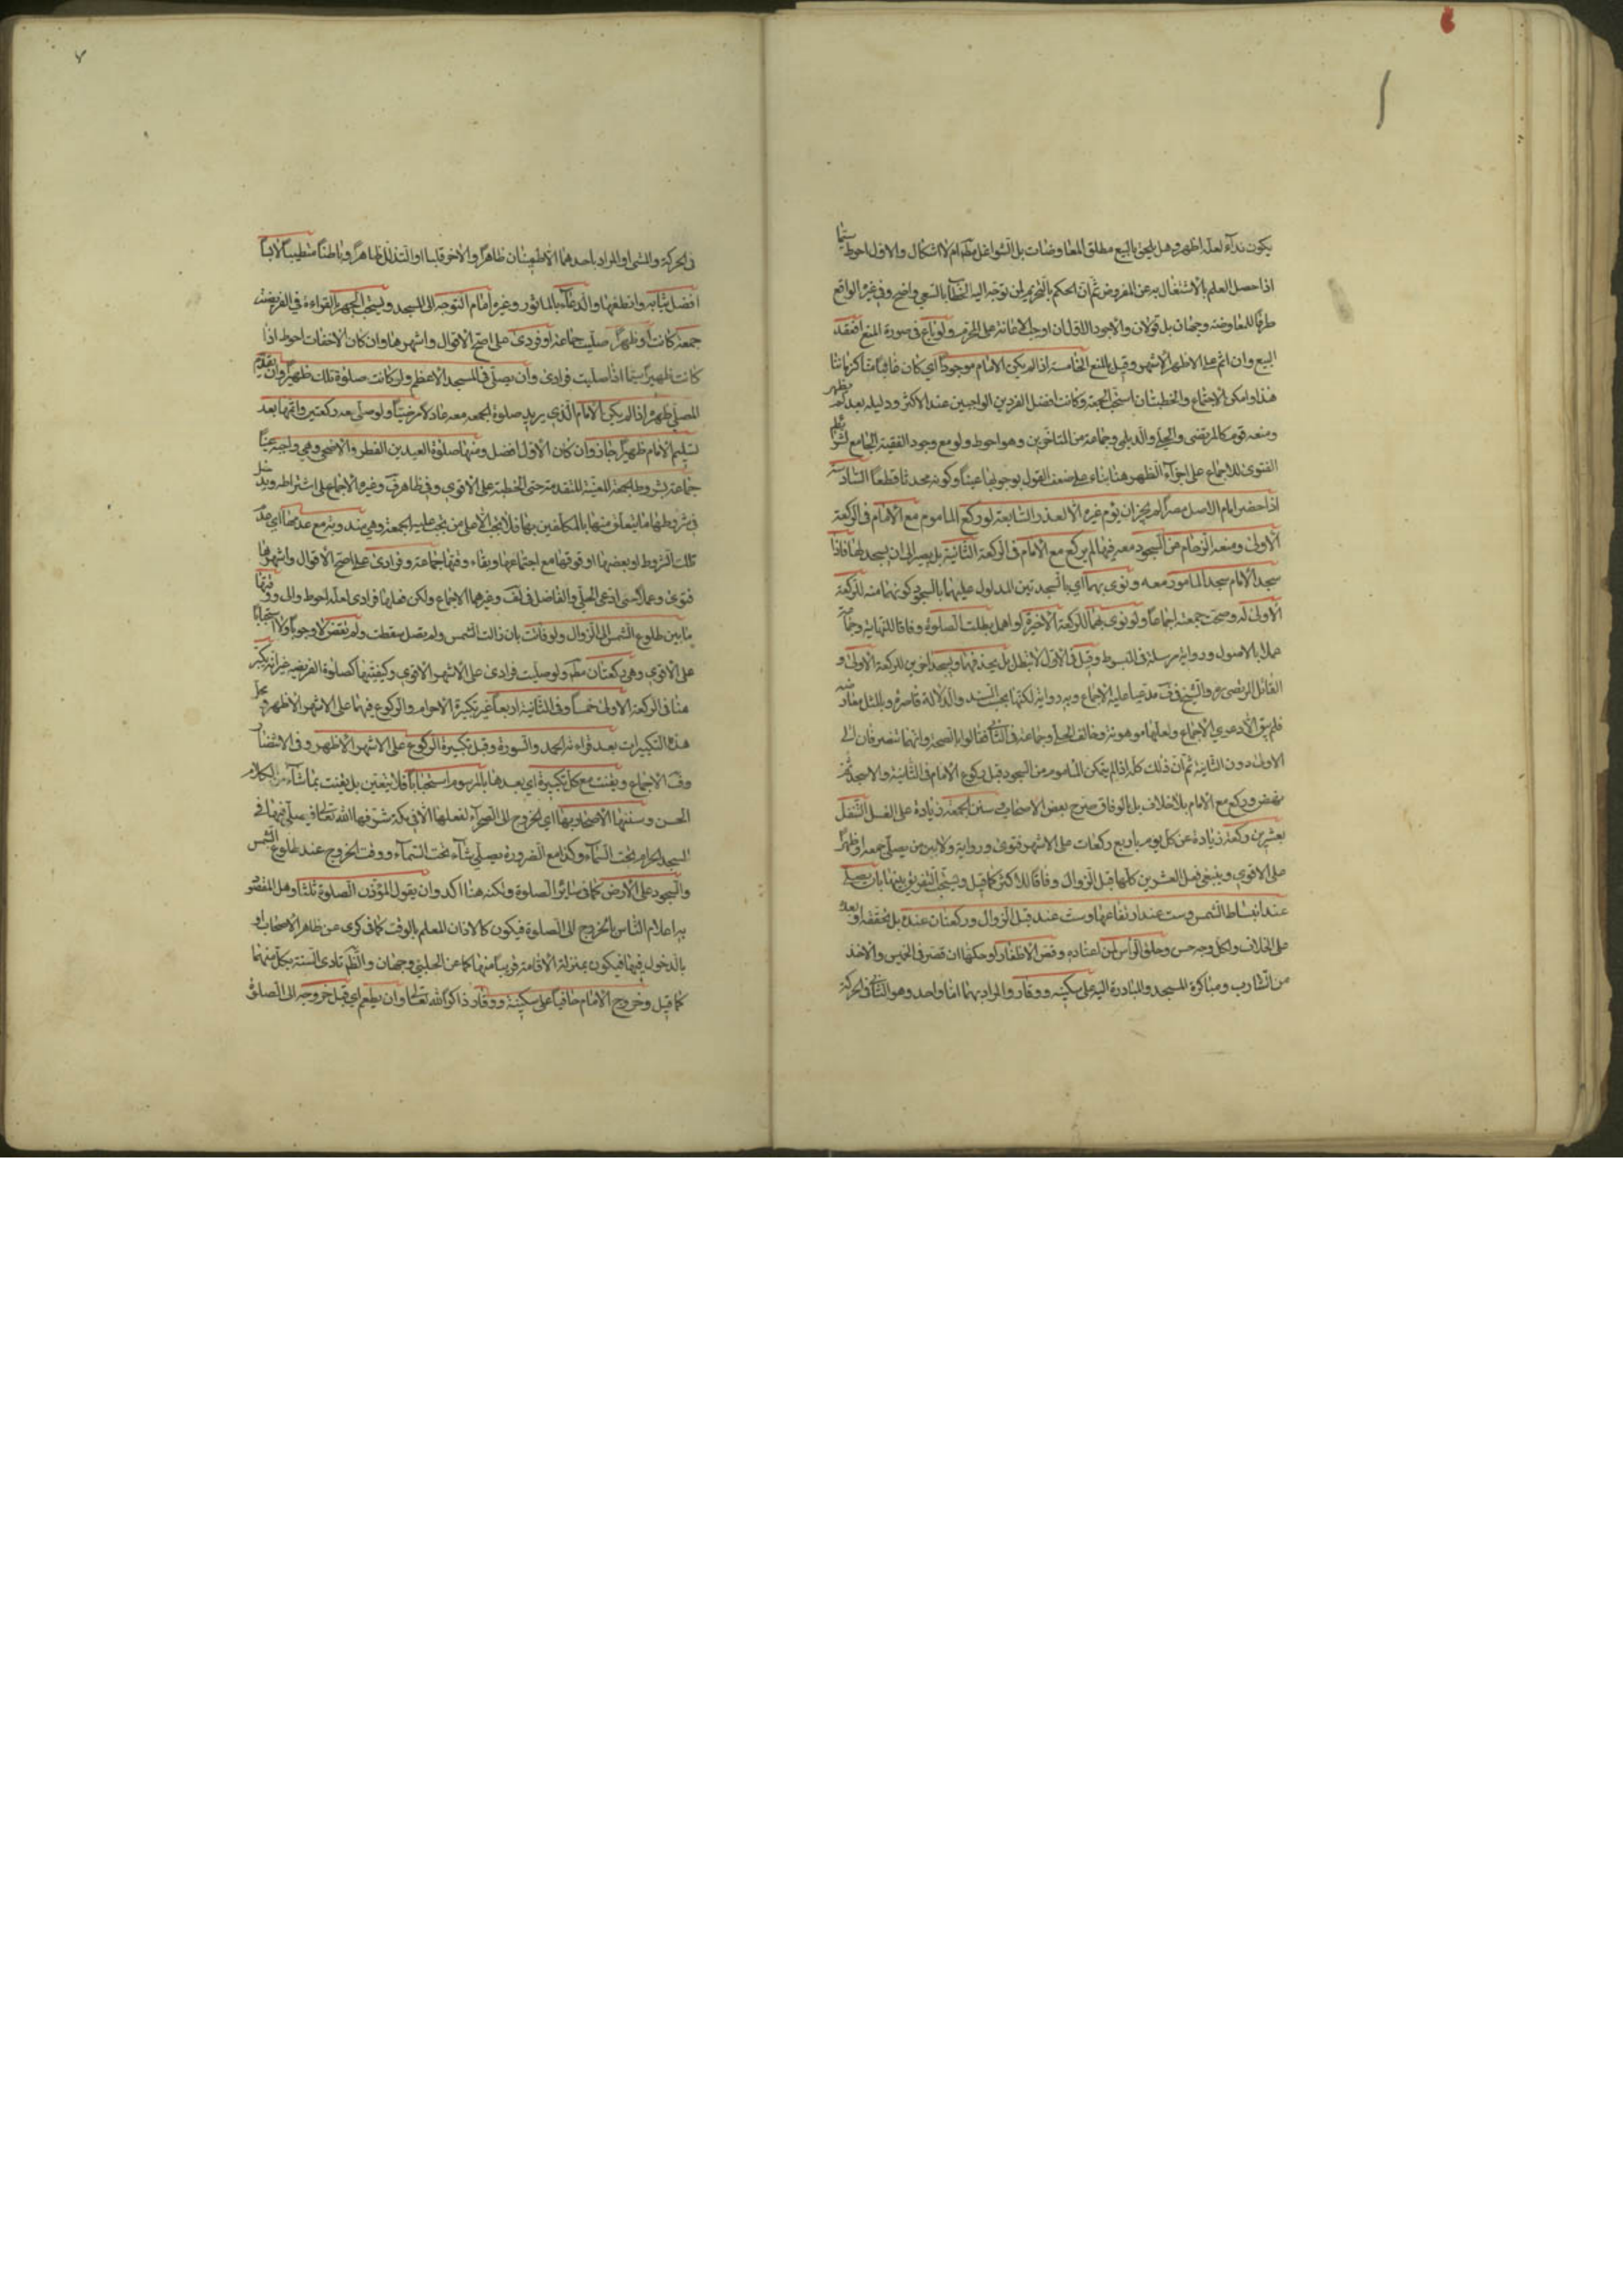 يكون نداء لعله اظهر وهل يلحق بالبيع مطلق المعاوضات بل الشواغل مطلقا ام لا اشكال والاول احوط سيما
اذا حصل العلم بالاشتغال به عن المفروض ثم ان الحكم بالتحريم لمن توجه اليه الخطاب بالسعي واضح وفي غيره الواقع
طرفا للمعاوضة وجهان بل قولان والاجود الاقلان اوجه الاعانة على المحرم ولو باع في صورة المنع انعقد
البيع وان اثم على الاظهر الاشهر وقيل بالمنع الخامسة اذا لم يكن الامام موجودا اي كان غائبا كزماننا
هذا وامكن الاجتماع والخطبتان استحب الجمعة وكانت افضل الفردين الواجبين عند الاكثر ودليله بعد لم يظهر
ومنعه قوم كالمرتضى والحلي والديلمي وجماعة من المتاخرين وهو احوط ولو مع وجود الفقيه الجامع لشرائط
الفتوى للاجماع على اجزاء الظهر هنا بناء على ضعف القول بوجوبها عينا وكونه محدثا قطعا السادسة
اذا حضر امام الاصل مصرا لم يجز ان يؤم غيره الا لعذر السابعة لو ركع الماموم مع الامام في الركعة
الاولى ومنعه الزحام عن السجود معه فيها لم يركع مع الامام في الركعة الثانية بل يصبر الى ان يسجد لها فاذا
سجد الامام سجد الماموم معه ونوى بهما اي بالسجدتين المدلول عليهما بالسجود كونهما منه للركعة
الاولى له وصحت جمعته اجماعا ولو نوى بهما للركعة الاخيرة او اهمل بطلت الصلوة وفاقا للنهاية وجماعة
عملا بالاصول ورواية مرسلة في المبسوط وقيل في الاول لا تبطل بل يحذفهما ويسجد اخريين للركعة الاولى و
القائل المرتضى ره والشيخ في ف مدعيا عليه الاجماع وبه رواية لكنها بحسب السند والدلالة قاصرة وبالمثل معارضة
فلم يبق الا دعوى الاجماع
الاولى دون الثانية ثم ان ذلك كله اذا لم يتمكن الماموم من السجود قبل ركوع الامام في الثانية والا سجد ثم
نهض وركع مع الامام بلا خلاف بل بالوفاق صرح بعض الاصحاب وسنن الجمعة زيادة على الغسل التنفل
بعشرين ركعة زيادة عن كل يوم باربع ركعات على الاشهر فتوى ورواية ولا بين من يصلي جمعة او ظهرا
على الاقوى وينبغي فعل العشرين كلها قبل الزوال وفاقا للاكثر كما قيل ويستحب التفريق بينها بان يصلي
عند انبساط الشمس وست عند ارتفاعها وست عند قبل الزوال وركعتان عنده بل تحققه او بعده
على الخلاف ولكل وجه حسن وحلق الراس لمن اعتاده وقص الاظفار او حكها ان قصر في الخميس والاخذ
من الشارب ومباكرة المسجد والمبادرة اليه على سكينة ووقار والمراد بهما اما واحد وهو التاني في الحركة
في الحركة والمشي او المراد باحدهما الاطمينان ظاهرا والاخر قلبا او التذلل ظاهرا وباطنا متطيبا لابسا
افضل ثيابه وانظفها والدعاء بالماثور وغيره امام التوجه الى المسجد ويستحب الجهر بالقراءة في الفريضة
جمعة كانت او ظهرا صليت جماعة او فرادى على اصح الاقوال واشهرها وان كان الاخفات احوط اذا
كانت ظهيرا سيما اذا صليت فرادى وان يصلي في المسجد الاعظم ولو كانت صلوة تلك ظهيرا وان يقدم
المصلي ظهره اذا لم يكن الامام الذي يريد صلوة الجمعة معه عادلا مرضيا ولو صلى معه ركعتين واتمها بعد
تسليم الامام ظهيرا جاز وان كان الاول افضل ومنها صلوة العيدين الفطر والاضحى وهي واجبة عينا
جماعة بشروط الجمعة المعينة المتقدمة حتى الخطبة على الاقوى وفي ظاهر ف وغيره الاجماع على اشتراطه ويدخل
في شروطها ما يتعلق منها بالمكلفين بها فلا تجب الا على من تجب عليه الجمعة وهي مندوبة مع عدمها اي عدم
تلك الشروط او بعضها او فوقها مع اجتماعها وبقاء وقتها جماعة وفرادى على اصح الاقوال واشهرها
فتوى وعملا حتى ادعى الحلي والفاضل في لف وغيرهما الاجماع ولكن فعلها فرادى لعله احوط واولى ووقتها
ما بين طلوع الشمس الى الزوال ولو فاتت بان زالت الشمس ولم يصل سقطت ولم تقض لا وجوبا ولا استحبابا
على الاقوى وهي ركعتان مطلقا ولو صليت فرادى على الاشهر الاقوى وكيفيتها كصلوة الفريضة غير انه يكبر
هنا في الركعة الاولى خمسا وفي الثانية اربعا غير تكبيرة الاحرام والركوع فيهما على الاشهر الاظهر ومحل
هذه التكبيرات بعد قراءة الحمد والسورة وقبل تكبيرة الركوع على الاشهر الاظهر وفي الانتصار
وف الاجماع ويقنت مع كل تكبيرة اي بعدها بالمرسوم استحبابا فلا يتعين بل يقنت بما شاء من الكلام
الحسن وسننها الاصحار بها اي الخروج الى الصحراء لفعلها الا في مكة شرفها الله تعالى فيصلي فيها في
المسجد الحرام تحت السماء وكذا مع الضرورة يصلي شاء تحت السماء ووقت الخروج عند طلوع الشمس
والسجود على الارض كما في سائر الصلوة ولكنه هنا اكد وان يقول المؤذن الصلوة ثلثا وهل المقصود
به اعلام الناس بالخروج الى الصلوة فيكون كالاذان المعلم بالوقت كما في كرى عن ظاهر الاصحاب او
بالدخول فيها فيكون بمنزلة الاقامة قريبا منها كما عن الحلبي وجهان والظاهر تادي السنة بكل منهما
كما قيل وخروج الامام حافيا على سكينة ووقار ذاكرا لله تعالى وان يطعم اي قبل خروجه الى الصلوة